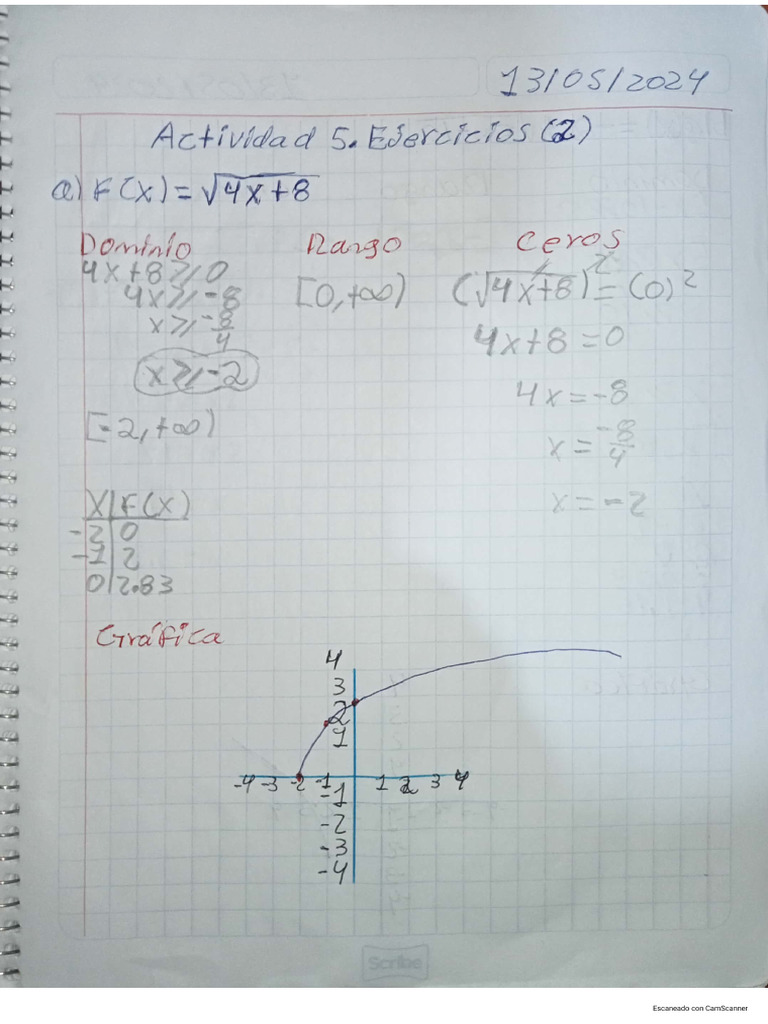 13/05/2024
Actividad 5. Ejercicios (2)
a) F(x) = √4x+8
Dominio
4x+8 ≥ 0
4x ≥ -8
x ≥ -8/4
x ≥ -2
[-2, +∞)
Rango
[0, +∞)
Ceros
(√4x+8)² = (0)²
4x+8 = 0
4x = -8
x = -8/4
x = -2
X | F(X)
-2 | 0
-1 | 2
0 | 2.83
Gráfica
4
3
2
1
-4 -3 -2 -1 1 2 3 4
-1
-2
-3
-4
Scribe
Escaneado con CamScanner